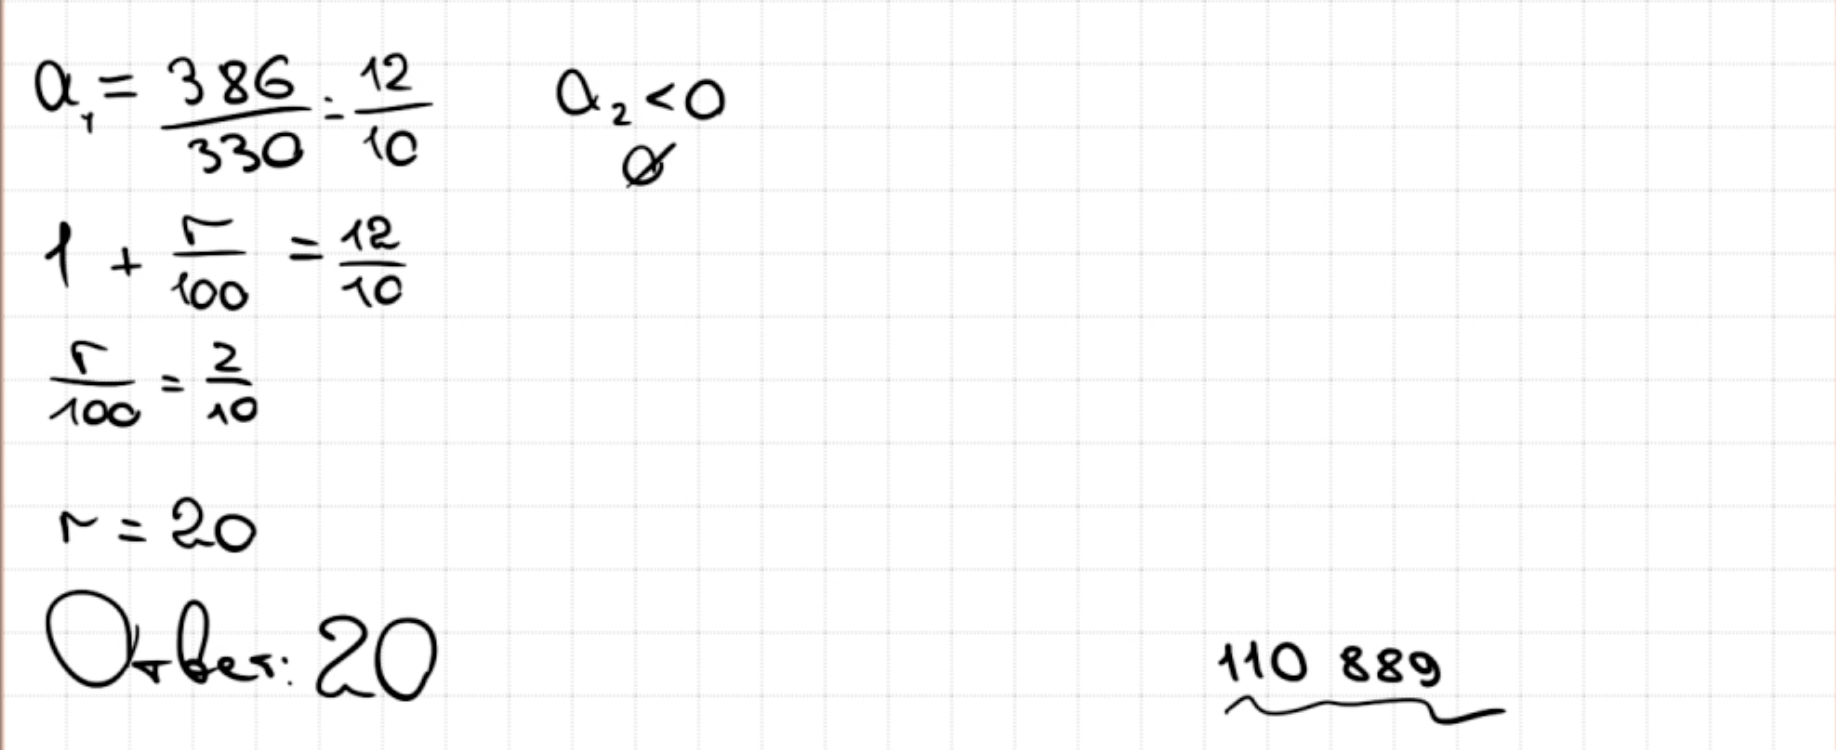 a₁ = 386/330 = 12/10    a₂ < 0
∅
1 + r/100 = 12/10
r/100 = 2/10
r = 20
Ответ: 20
110 889